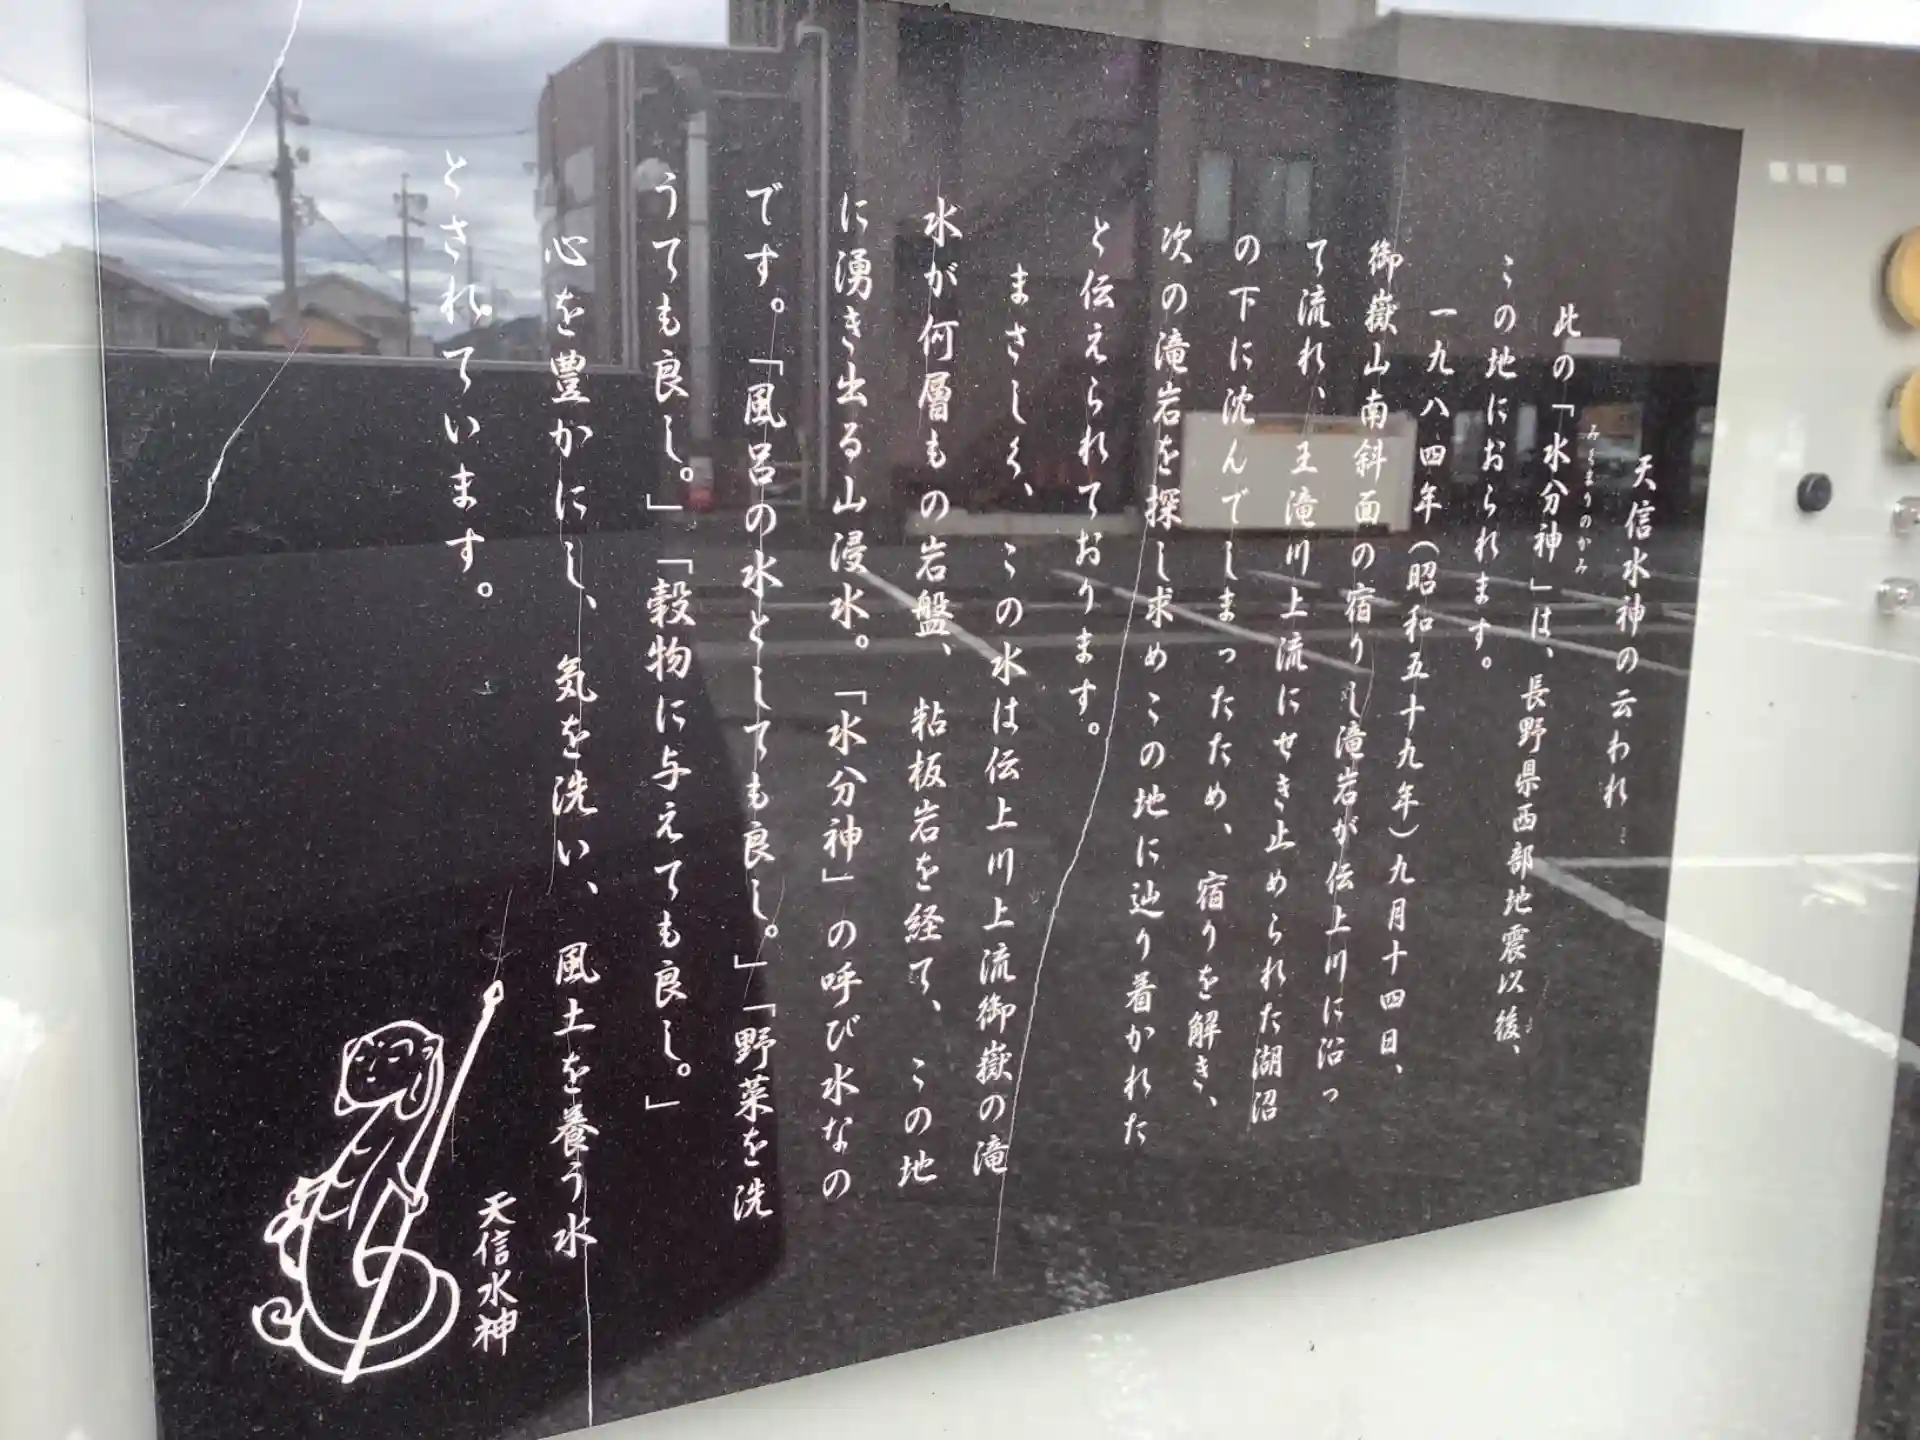 天信水神の云われ…
みくまりのかみ
此の「水分神」は、長野県西部地震以後、
この地におられます。
一九八四年（昭和五十九年）九月十四日、
御嶽山南斜面の宿りし滝岩が伝上川に沿っ
て流れ、王滝川上流にせき止められた湖沼
の下に沈んでしまったため、宿りを解き、
次の滝岩を探し求めこの地に辿り着かれた
と伝えられております。
まさしく、この水は伝上川上流御嶽の滝
水が何層もの岩盤、粘板岩を経て、この地
に湧き出る山浸水。「水分神」の呼び水なの
です。「風呂の水としても良し。」「野菜を洗
うても良し。」「穀物に与えても良し。」
心を豊かにし、気を洗い、風土を養う水
とされています。
天信水神